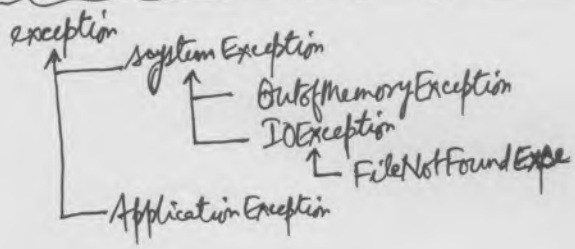 exception
systemException
OutofMemoryException
IOException
FileNotFoundExpe
ApplicationException